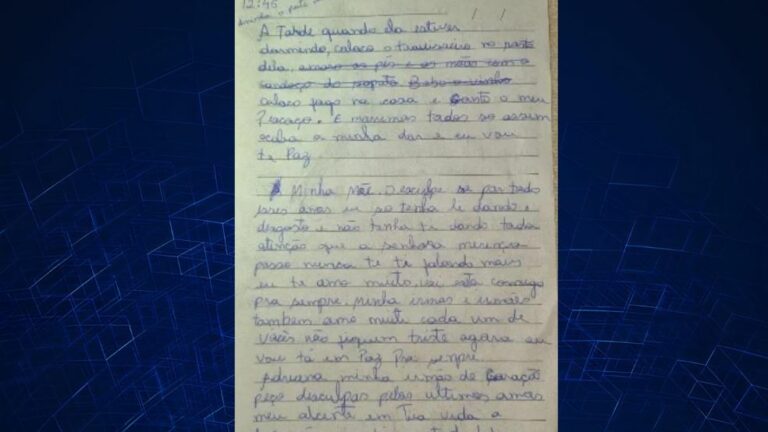 12:45
A Tarde quando ela estiver
dormindo, coloco o travisseiro no rosto
dela, amaro os pés e as mãos com o
cardaço do sapato Bebo o vinho
coloco fogo na casa e Canto o meu
Pescoço. E morremos todos so assim
acaba a minha dor e eu vou
te Paz
A Minha Mãe. Desculpe se por todos
esses anos eu so tenha le dando
desgosto e não tenha te dando toda
atenção que a senhora mereça
posso nunca te te falando mais
eu te amo muito, vai esta comigo
pra sempre. Minha irmas e irmãos
tambem amo muito cada um de
voces não fiquem triste agora eu
vou tá em Paz Pra sempre
Adriana minha irmão de Coração
peço desculpas pelos ultimos anos
meu em Tua vida a